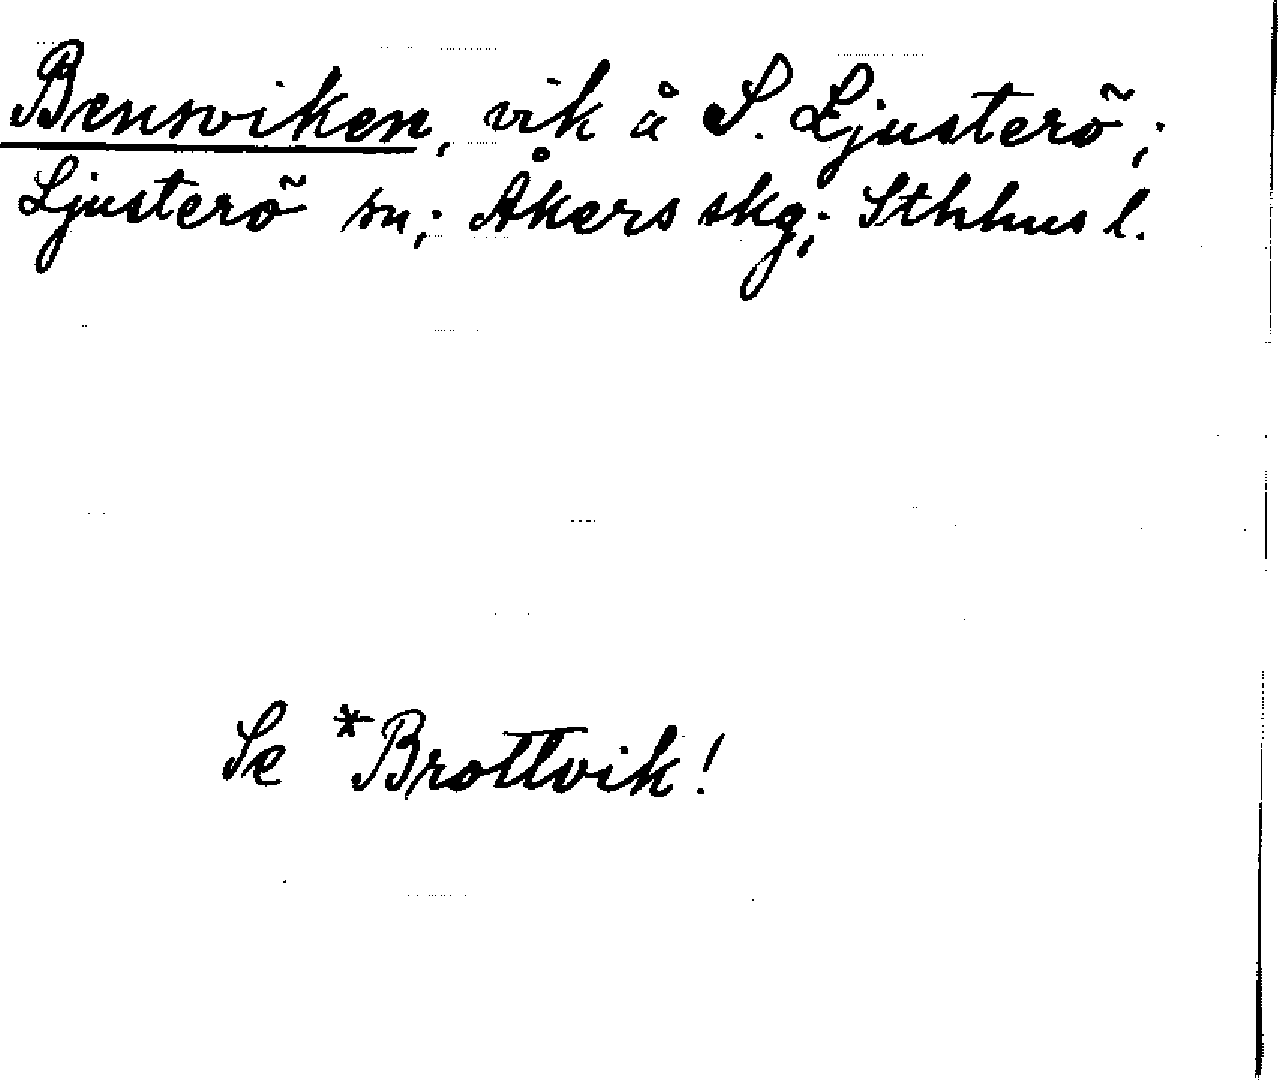 Bensviken, vik å S. Ljusterö;
Ljusterö sn; Åkers skg; Sthhus l.
Se *Brottvik!